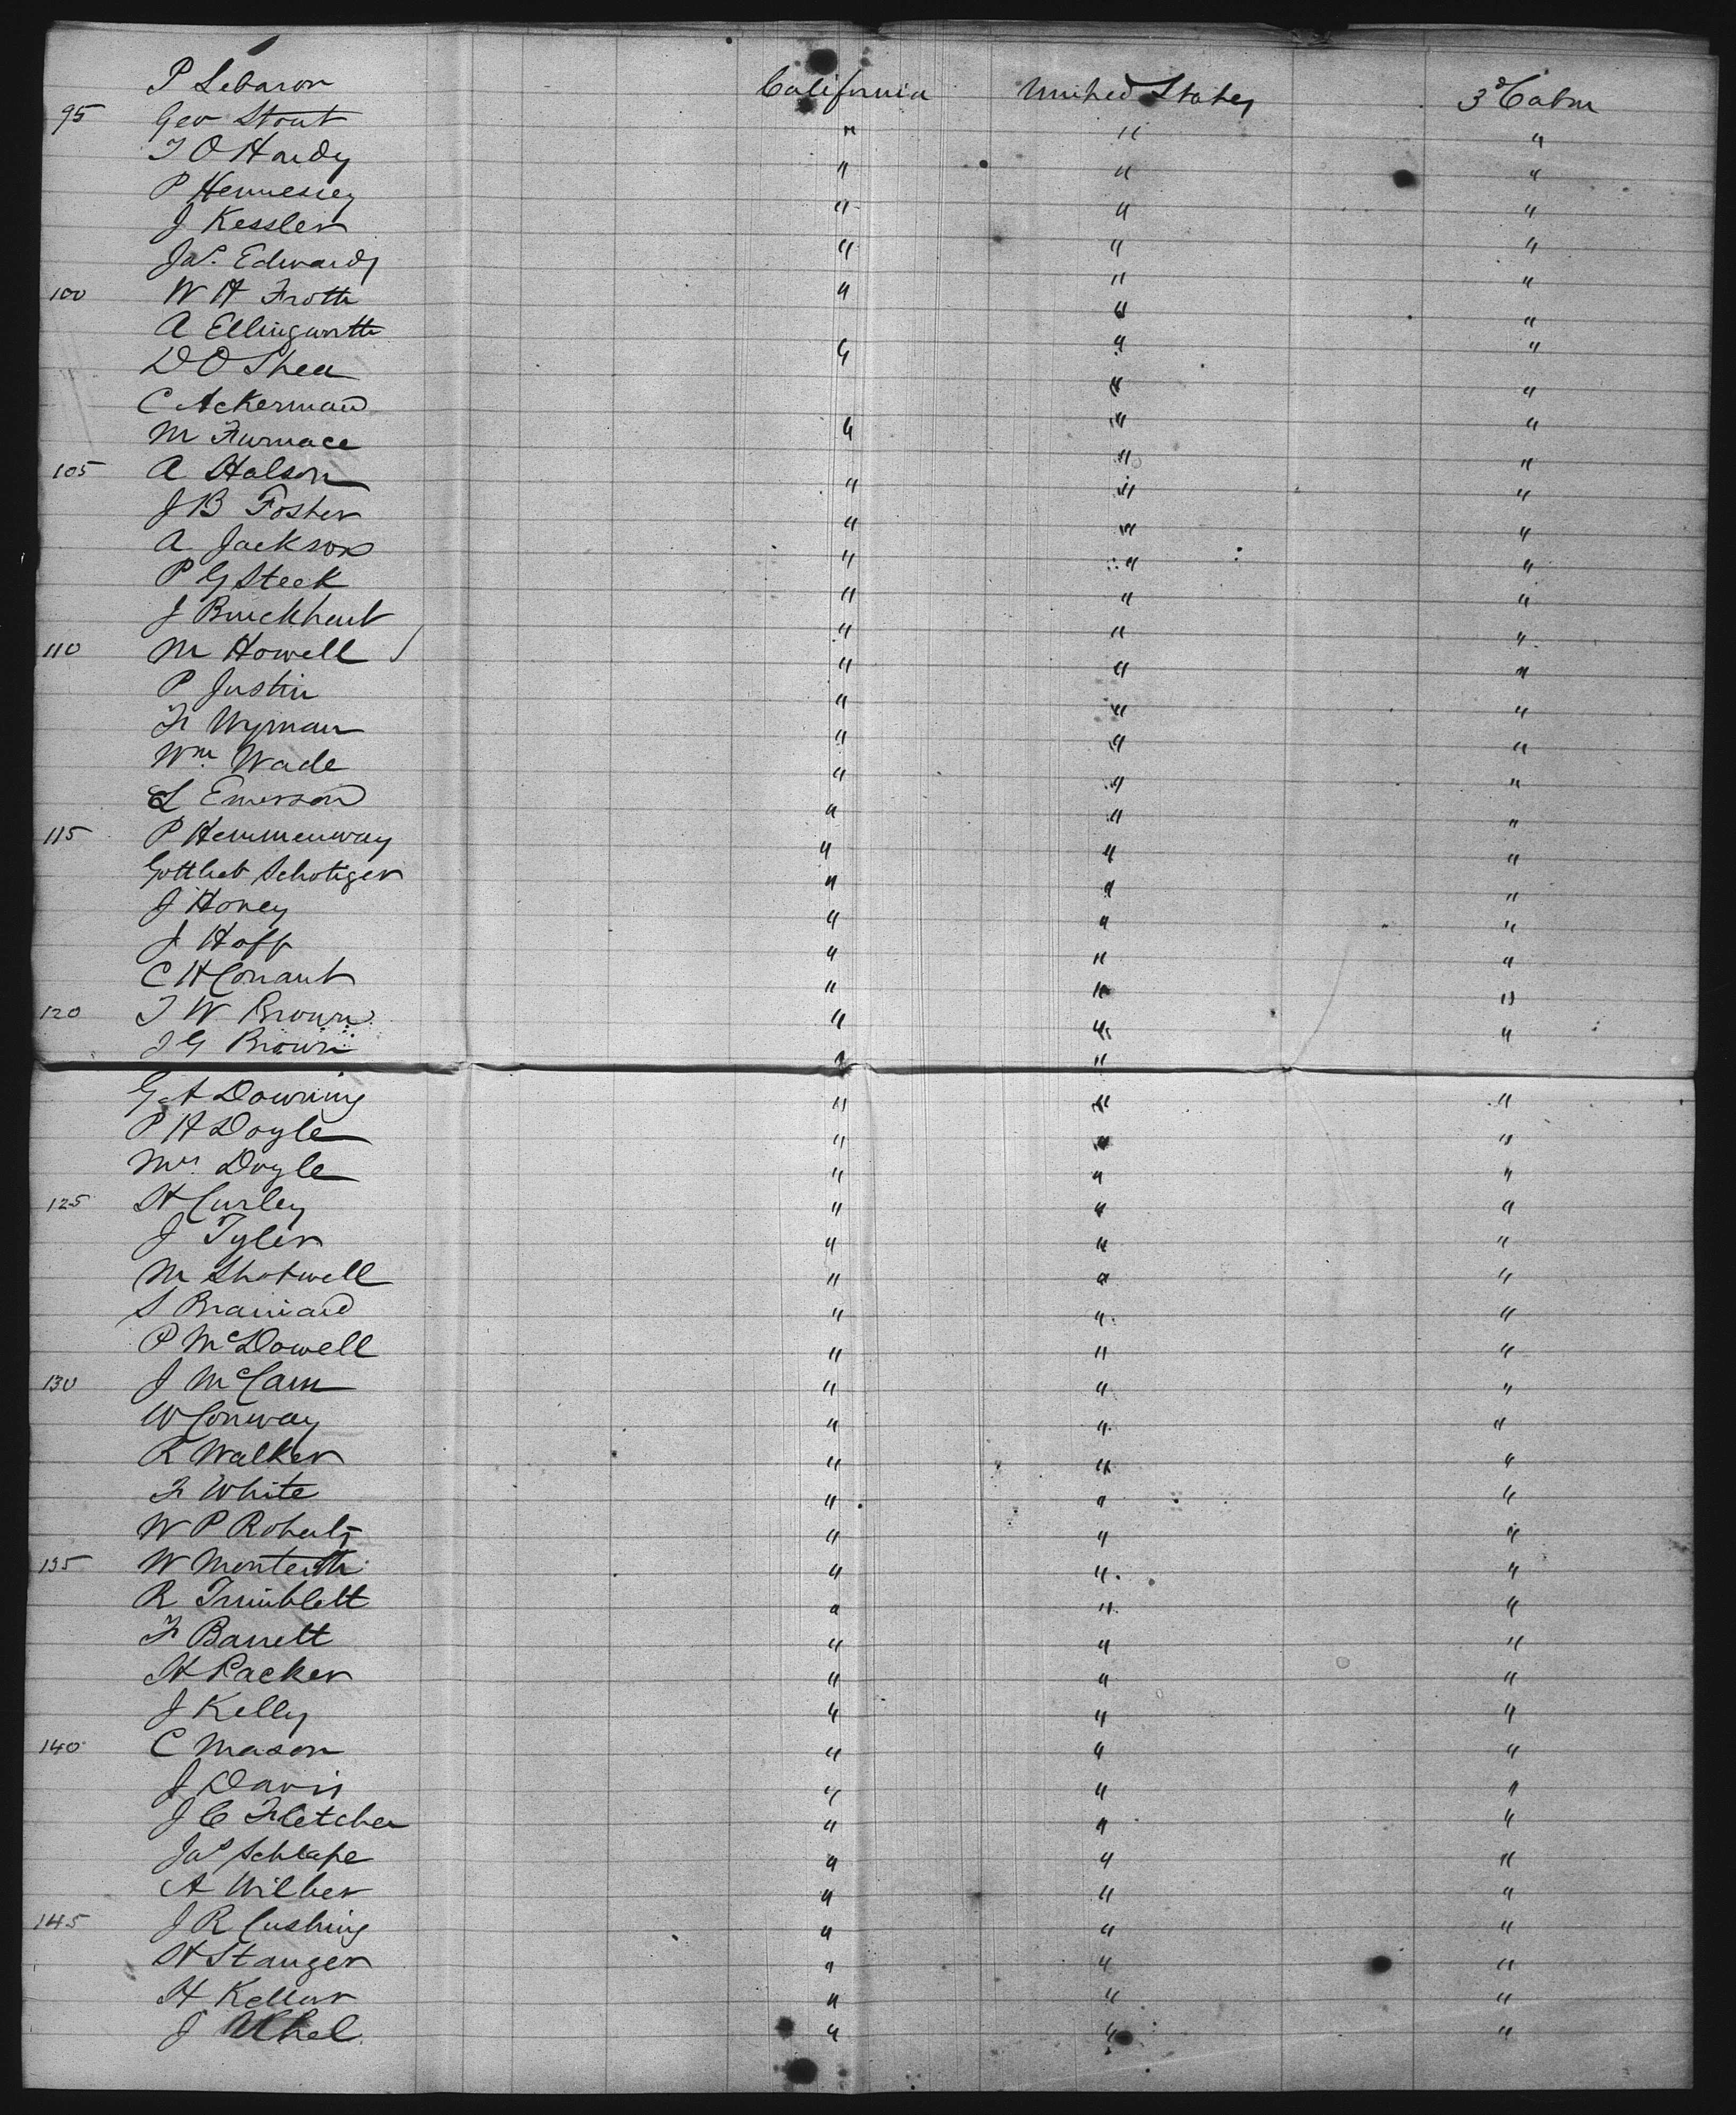 P Lebaron California United States 3d Cabin
95 Geo Stout " " "
T O Hardy " " "
P Hennessey " " "
J Kessler " " "
Jas. Edwards " " "
100 W H Froth " " "
A Ellingworth " "
D O Shea " " "
C Ackerman " "
M Furnace " " "
105 A Halson " " "
J B Foster " " "
A Jackson " " "
P G Steek " " "
J Burckhart " " "
110 M Howell " " "
P Justin " " "
Fr Wyman " " "
Wm. Wade " " "
L Emerson " " "
115 P Hemmenway " " "
Gottlieb Schotiger " " "
J Honey " " "
J Hoff " " "
C H Conant " " "
120 T W Brown " " "
J G Brown " "
G A Downing " " "
P H Doyle " " "
Mrs. Doyle " " "
125 H Curley " " "
J Tyler " " "
M Shotwell " " "
S Brainard " " "
P McDowell " " "
130 J McCam " " "
W Conway " " "
R Walker " " "
Fr White " " "
W P Roberts " " "
135 W Monteith " " "
R Trimblett " " "
Fr Barrett " " "
H Packer " " "
J Kelly " " "
140 C Mason " " "
J Davis " " "
J C Fletcher " " "
Jas Schlape " " "
A Wilber " " "
145 J R Cushing " " "
H Stanger " " "
H Keller " " "
J Uhel " " "